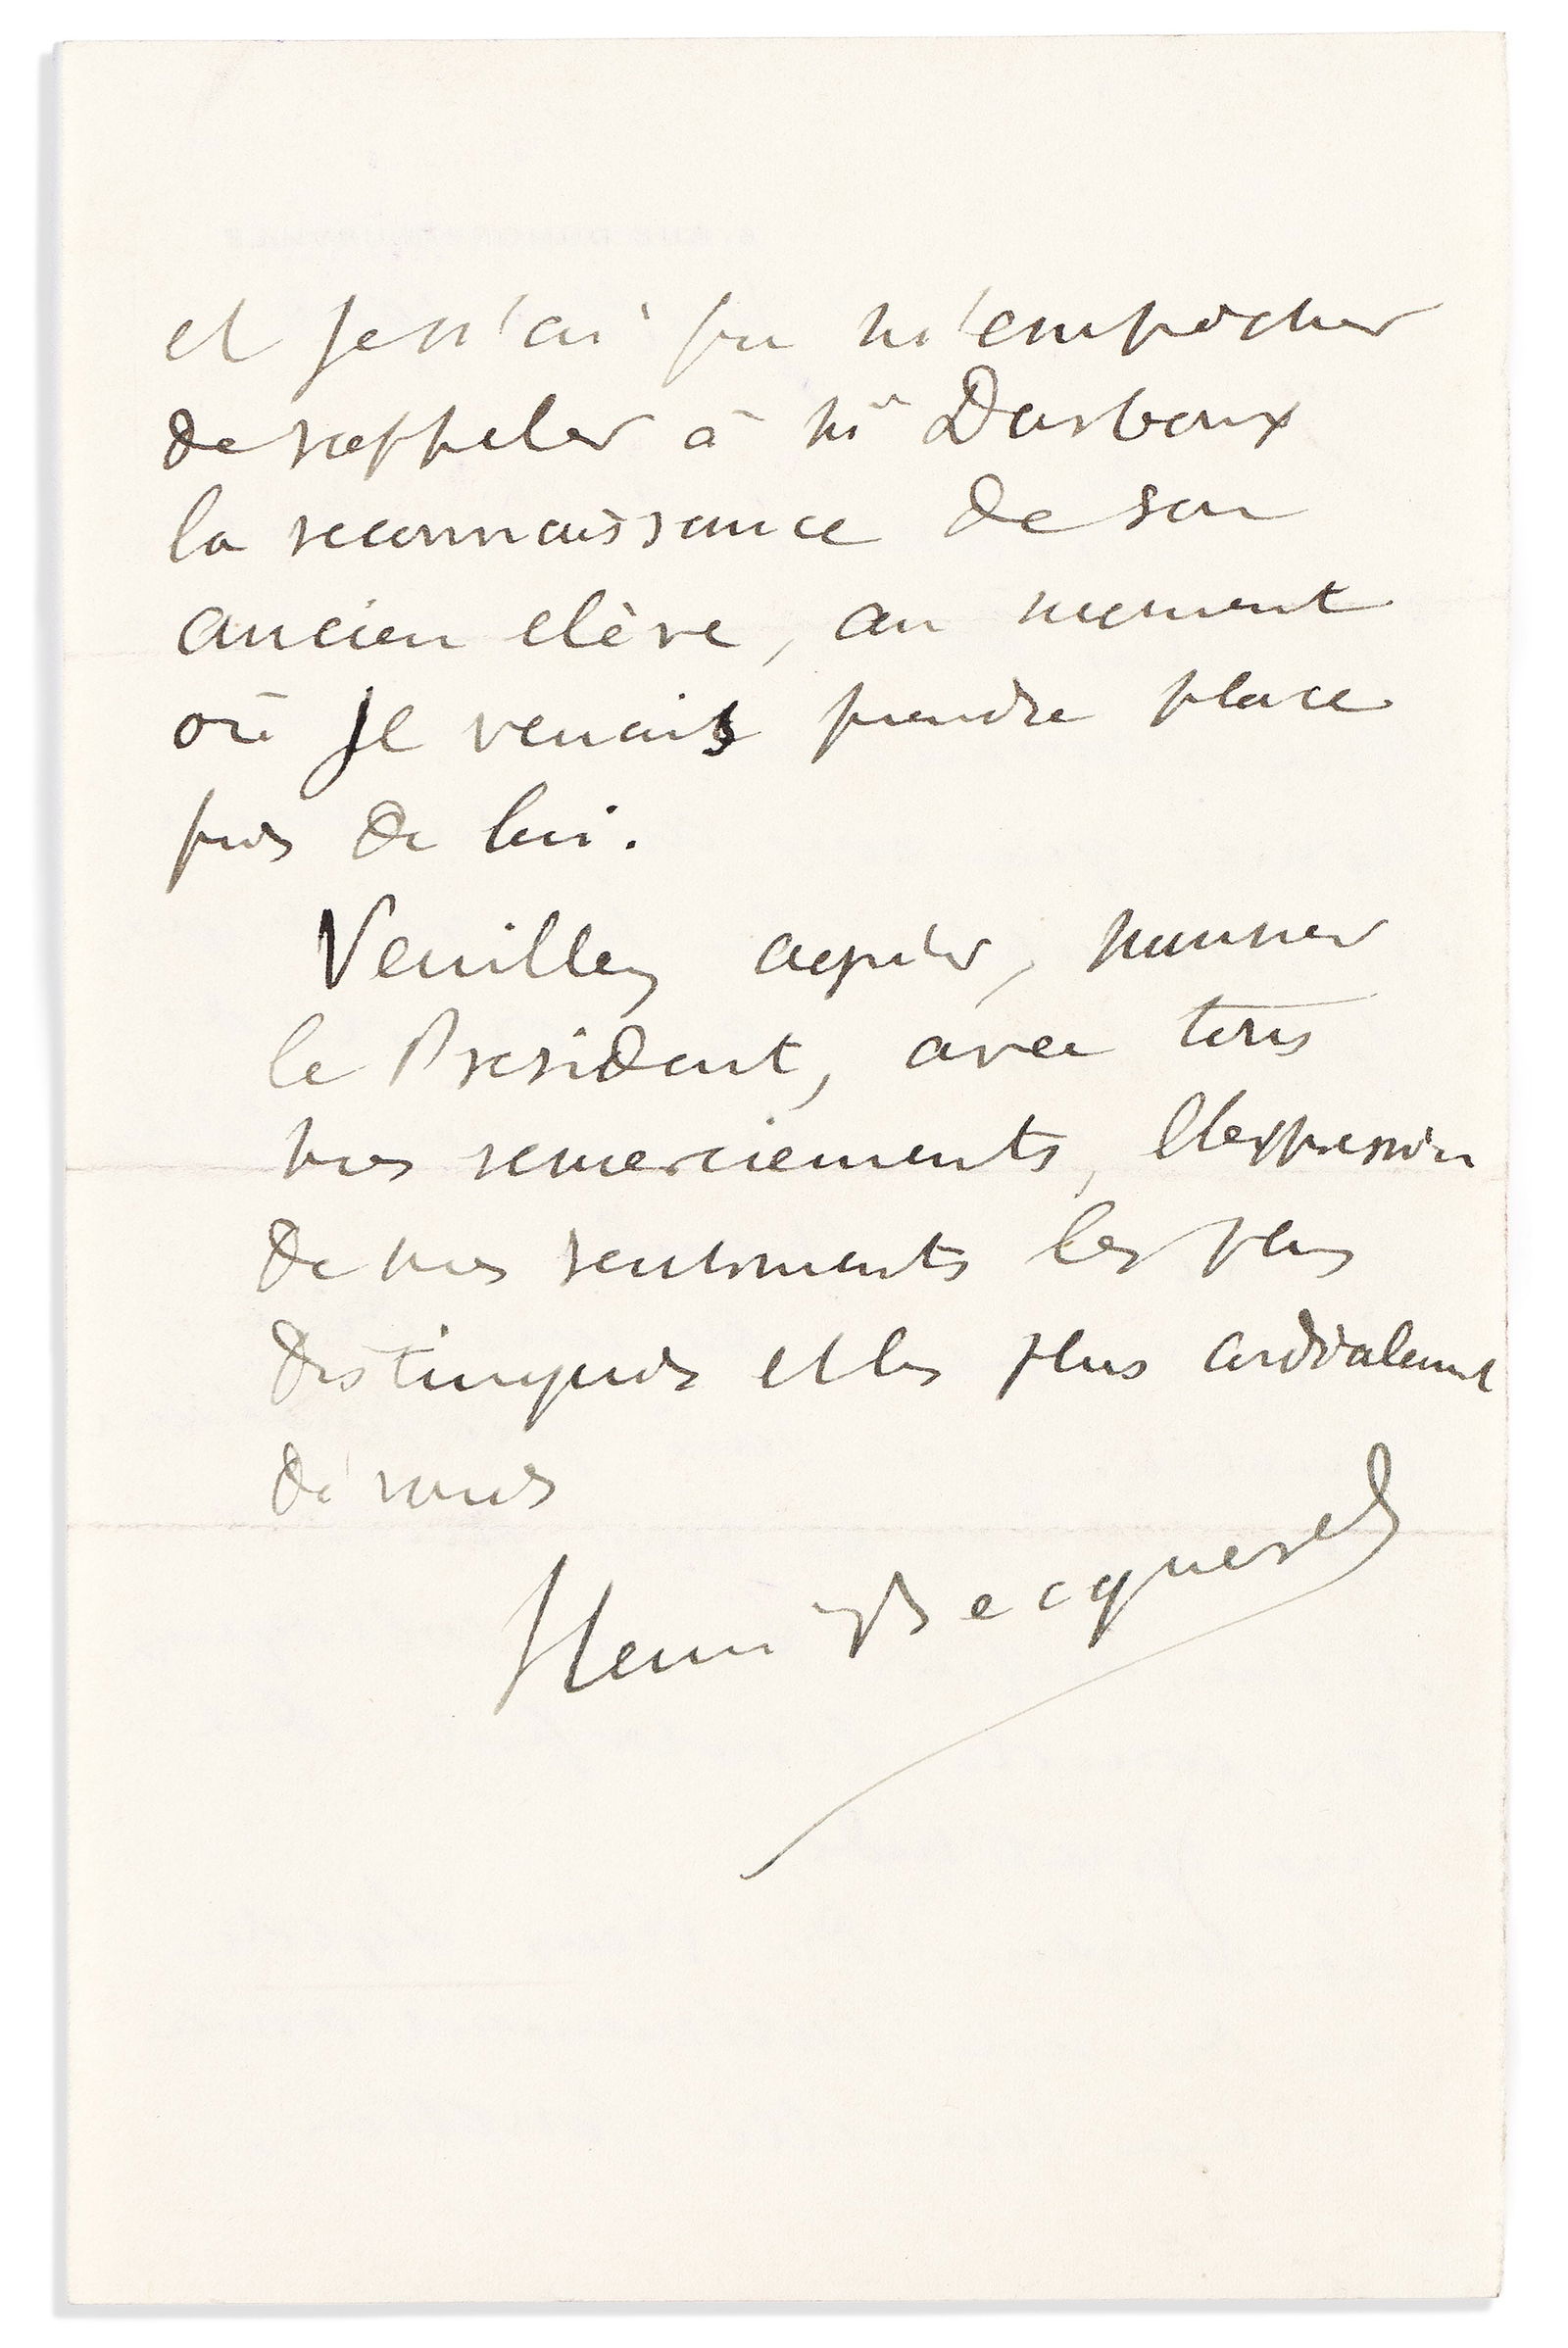 et je n'ai pu m'empêcher
de rappeler à Mr Darboux
la reconnaissance de son
ancien elève, au moment
où je venais prendre place
près de lui.
Veuillez agréer, monsieur
le Président, avec tous
mes remerciements, l'expression
de mes sentiments les plus
distingués et les plus cordialement
dévoués
Henri Becquerel